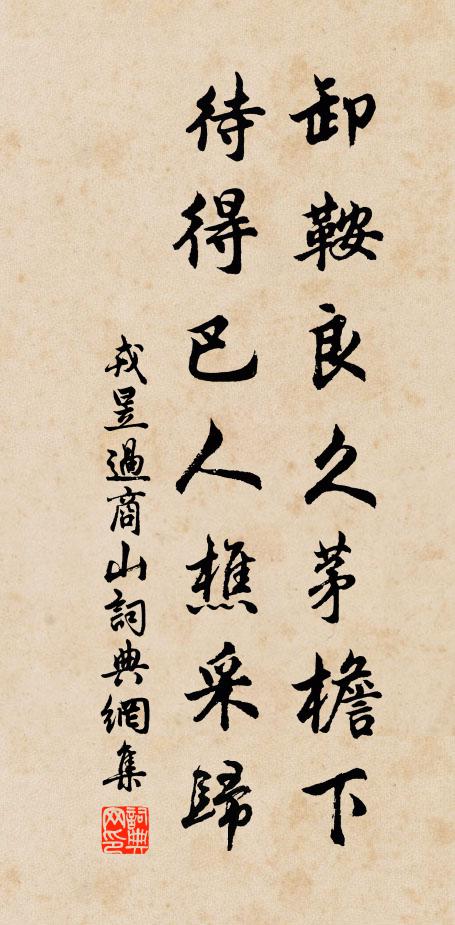 卸鞍良久茅檐下
待得巴人樵采歸
戎昱過商山詞典網集
詞典網印